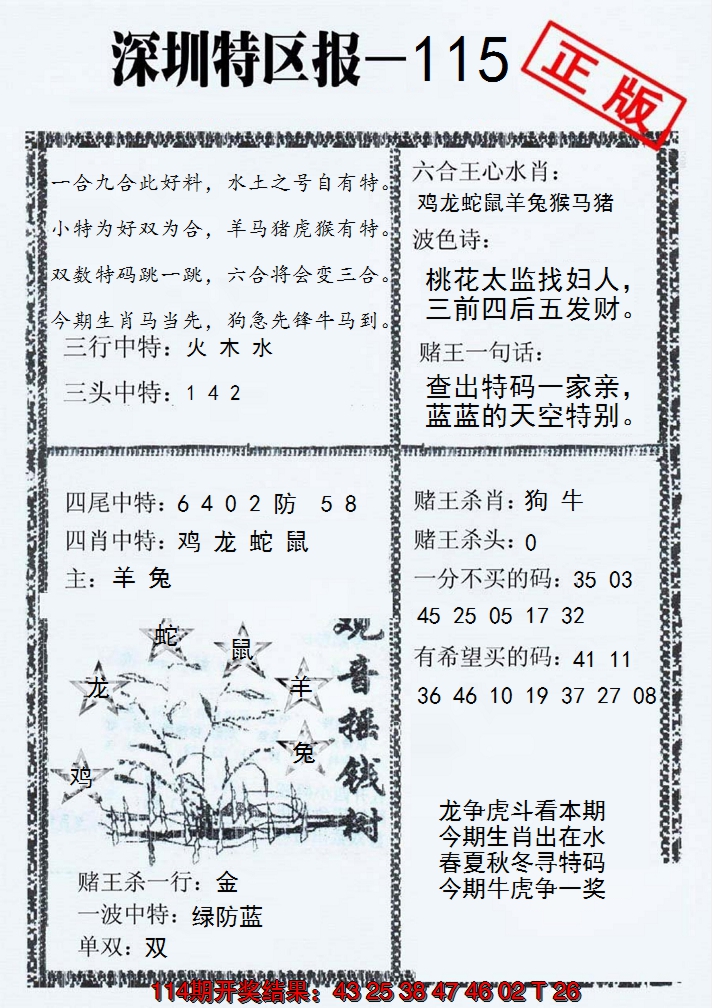 深圳特区报-115
正版
一合九合此好料，水土之号自有特。
小特为好双为合，羊马猪虎猴有特。
双数特码跳一跳，六合将会变三合。
今期生肖马当先，狗急先锋牛马到。
三行中特：火 木 水
三头中特：1 4 2
六合王心水肖：
鸡龙蛇鼠羊兔猴马猪
波色诗：
桃花太监找妇人，
三前四后五发财。
赌王一句话：
查出特码一家亲，
蓝蓝的天空特别。
四尾中特：6 4 0 2 防 5 8
四肖中特：鸡 龙 蛇 鼠
主：羊 兔
蛇
鼠
龙
羊
兔
鸡
观音摇钱树
赌王杀一行：金
一波中特：绿防蓝
单双：双
赌王杀肖：狗 牛
赌王杀头：0
一分不买的码：35 03
45 25 05 17 32
有希望买的码：41 11
36 46 10 19 37 27 08
龙争虎斗看本期
今期生肖出在水
春夏秋冬寻特码
今期牛虎争一奖
114期开奖结果：43 25 38 47 46 02 T 26